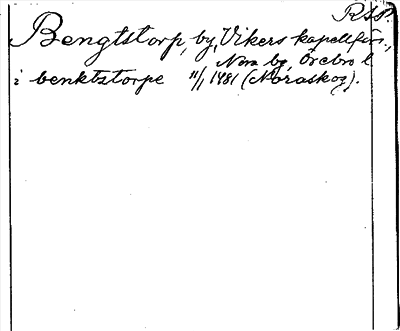 RAP.
Bengtstorp, by, Vikers kapellförs.,
Nora bg, Örebro l
i benktztorpe 11/1 1481 (Noraskog).